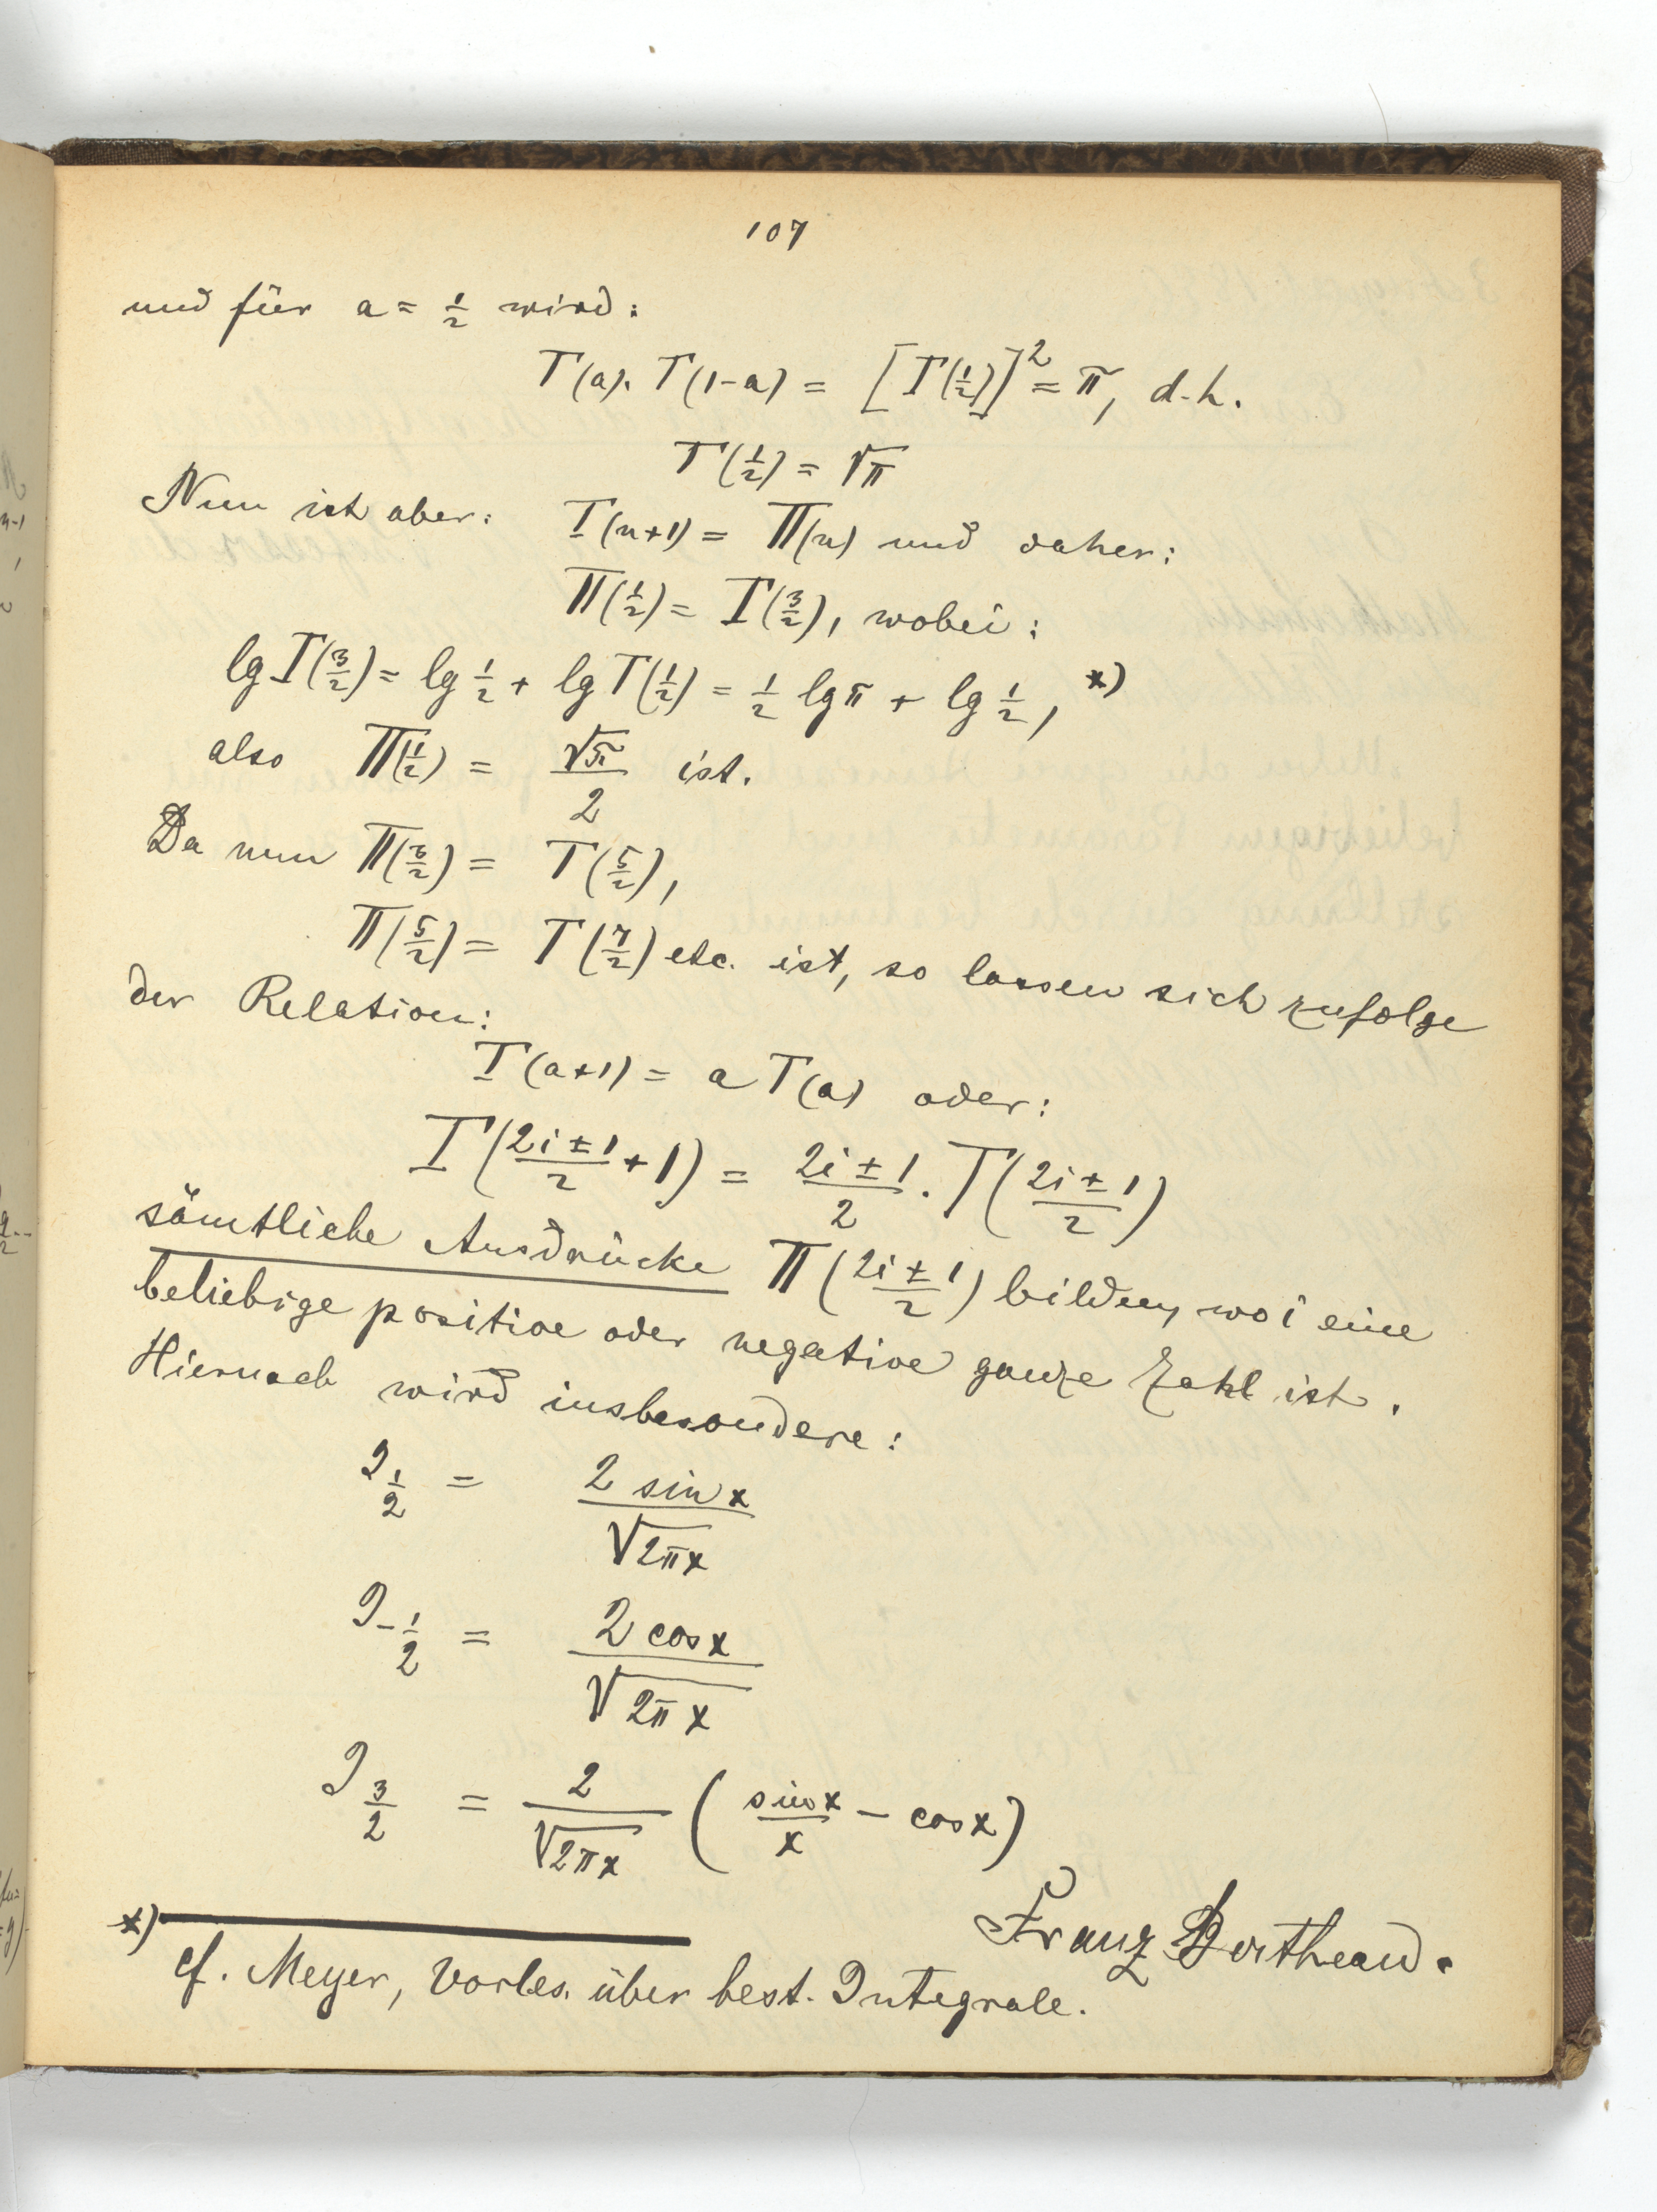 107
und für a = 1/2 wird:
Γ(a). Γ(1-a) = [Γ(1/2)]² = π, d.h.
Γ(1/2) = √π
Nun ist aber: Γ(n+1) = Π(n) und daher:
Π(1/2) = Γ(3/2), wobei:
lg Γ(3/2) = lg 1/2 + lg Γ(1/2) = 1/2 lg π + lg 1/2, *)
also Π(1/2) = √π/2 ist.
Da nun Π(3/2) = Γ(5/2),
Π(5/2) = Γ(7/2) etc. ist, so lassen sich zufolge
der Relation:
Γ(a+1) = a Γ(a) oder:
Γ((2i ± 1)/2 + 1) = (2i ± 1)/2 . Γ((2i ± 1)/2)
sämtliche Ausdrücke Π((2i ± 1)/2) bilden, wo i eine
beliebige positive oder negative ganze Zahl ist.
Hiernach wird insbesondere:
J 1/2 = 2 sin x / √2πx
J -1/2 = 2 cos x / √2πx
J 3/2 = 2/√2πx (sin x/x - cos x)
Franz
*)
cf. Meyer, Vorles. über best. Integrale.